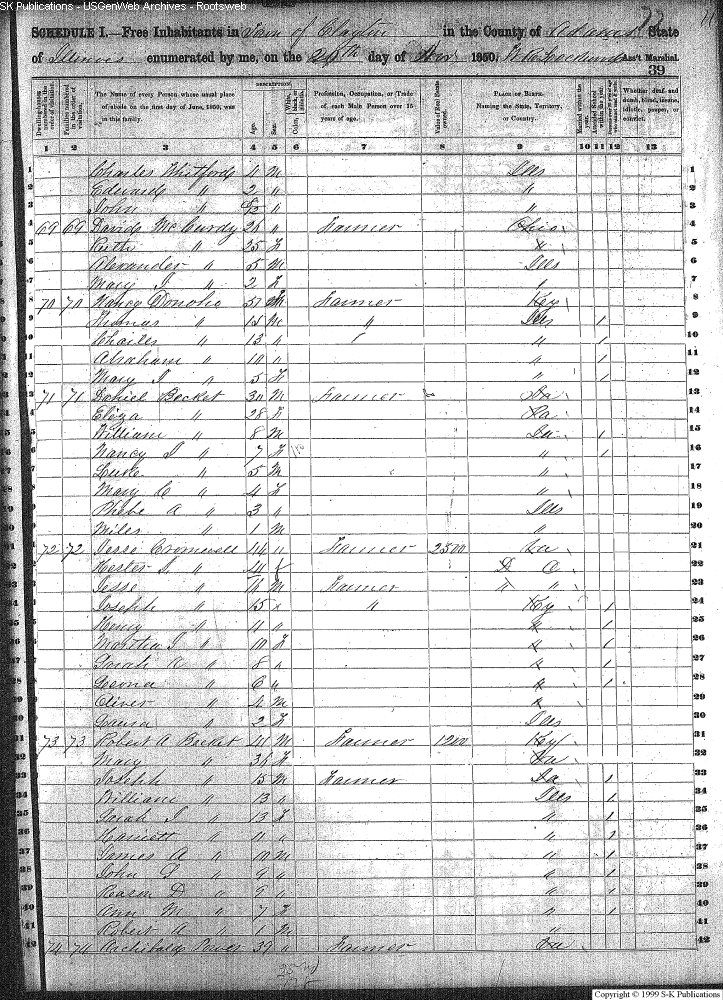 SK Publications - USGenWeb Archives - Rootsweb
SCHEDULE I.—Free Inhabitants in Town of Clayton in the County of Adams State
of Illinois enumerated by me, on the 26th day of Nov 1850. Ass't Marshal.
39
Dwelling-houses numbered in the order of visitation. Families numbered in the order of visitation. The Name of every Person whose usual place of abode on the first day of June, 1850, was in this family. DESCRIPTION. Age. Sex. White, black, or mulatto. Color, Profession, Occupation, or Trade of each Male Person over 15 years of age. Value of Real Estate owned. PLACE OF BIRTH. Naming the State, Territory, or Country. Married within the year. Attended School within the year. Whether deaf and dumb, blind, insane, idiotic, pauper, or convict.
1 2 3 4 5 6 7 8 9 10 11 12 13
1 Charles Whitford 4 M Ills 1
2 Edward " 2 " " 2
3 John " " " 3
4 69 69 David McCurdy 26 " Farmer Ohio 4
5 Ruth " 25 F " 5
6 Alexander " 5 M Ills 6
7 Mary J " 2 F " 7
8 70 70 Nancy Donoho 51 Farmer Key 8
9 Thomas " 15 M " Ills 1 9
10 Charles " 13 " " 1 10
11 Abraham " 10 " " 1 11
12 Mary J " 5 F " 1 12
13 71 71 Daniel Becket 30 M Farmer 13
14 Eliza " 28 F Pa 14
15 William " 8 M Ia 1 15
16 Nancy J " 7 F " 1 16
17 " 5 M " 17
18 Mary C " 4 F " 18
19 Phebe A " 3 " Ills 19
20 Miles " 1 M " 20
21 72 72 Jesse Cromwell 44 " Farmer 2500 21
22 Hester J " 41 F D C 22
23 Jesse " 16 M Farmer " " 23
24 Joseph " 15 " " Ky 1 24
25 Henry " 11 " " 1 25
26 Martha J " 10 F " 1 26
27 Sarah A " 8 " " 1 27
28 Leona " 6 " " 1 28
29 Oliver " 4 M " 29
30 Louisa " 2 F Ills 30
31 73 73 Robert A Becket 41 M Farmer 1200 Key 31
32 Mary " 35 F 32
33 Joseph " 15 M Farmer Ia 1 33
34 William " 13 " Ills 1 34
35 Sarah J " 13 F " 1 35
36 Harriett " 11 " " 1 36
37 James A " 10 M " 1 37
38 John " 9 " " 1 38
39 D " 9 " " 1 39
40 Ann M " 7 F " 1 40
41 Robert A " 1 M " 41
42 74 74 Archibald 39 " Farmer 42
Copyright © 1999 S-K Publications